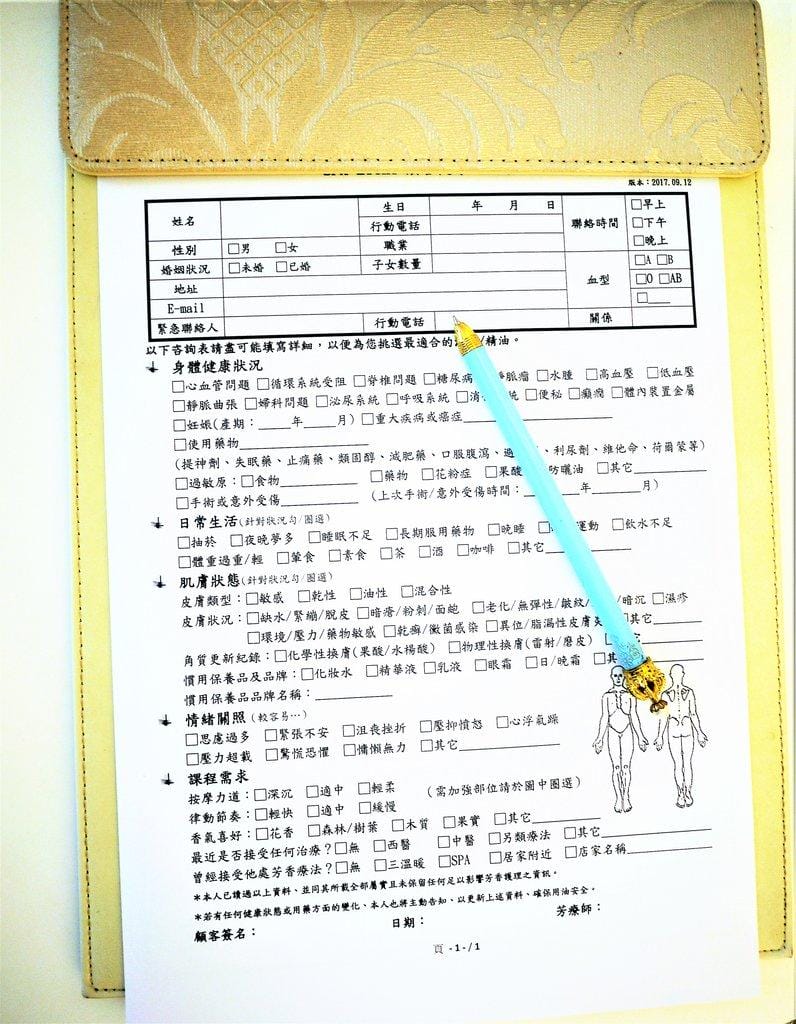 版本：2017.09.12
姓名 生日 年 月 日 聯絡時間 □早上 □下午 □晚上
行動電話
性別 □男 □女 職業
婚姻狀況 □未婚 □已婚 子女數量 血型 □A □B □O □AB □____
地址
E-mail
緊急聯絡人 行動電話 關係
以下咨詢表請盡可能填寫詳細，以便為您挑選最適合的 /精油。
身體健康狀況
□心血管問題 □循環系統受阻 □脊椎問題 □糖尿病 靜脈瘤 □水腫 □高血壓 □低血壓
□靜脈曲張 □婦科問題 □泌尿系統 □呼吸系統 □消 統 □便秘 □癲癇 □體內裝置金屬
□妊娠(產期：_____年_____月) □重大疾病或癌症__________
□使用藥物__________
(提神劑、失眠藥、止痛藥、類固醇、減肥藥、口服腹瀉、 、利尿劑、維他命、荷爾蒙等)
□過敏原：□食物__________ □藥物 □花粉症 □果酸 防曬油 □其它__________
□手術或意外受傷__________ (上次手術/意外受傷時間：_____年_____月)
日常生活(針對狀況勾/圈選)
□抽菸 □夜晚夢多 □睡眠不足 □長期服用藥物 □晚睡 運動 □飲水不足
□體重過重/輕 □葷食 □素食 □茶 □酒 □咖啡 □其它__________
肌膚狀態(針對狀況勾/圈選)
皮膚類型：□敏感 □乾性 □油性 □混合性
皮膚狀況：□缺水/緊繃/脫皮 □暗瘡/粉刺/面皰 □老化/無彈性/皺紋 /暗沉 □濕疹
□環境/壓力/藥物敏感 □乾癬/黴菌感染 □異位/脂漏性皮膚炎 其它__________
角質更新紀錄：□化學性換膚(果酸/水楊酸) □物理性換膚(雷射/磨皮) □
慣用保養品及品牌：□化妝水 □精華液 □乳液 □眼霜 □日/晚霜 □其
慣用保養品品牌名稱：__________
情緒關照 (較容易…)
□思慮過多 □緊張不安 □沮喪挫折 □壓抑憤怒 □心浮氣躁
□壓力超載 □驚慌恐懼 □慵懶無力 □其它__________
課程需求
按摩力道：□深沉 □適中 □輕柔 (需加強部位請於圖中圈選)
律動節奏：□輕快 □適中 □緩慢
香氣喜好：□花香 □森林/樹葉 □木質 □果實 □其它__________
最近是否接受任何治療？□無 □西醫 □中醫 □另類療法 □其它__________
曾經接受他處芳香療法？□無 □三溫暖 □SPA □居家附近 □店家名稱__________
*本人已讀過以上資料、並同其所載全部屬實且未保留任何足以影響芳香護理之資訊。
*若有任何健康狀態或用藥方面的變化、本人也將主動告知、以更新上述資料、確保用油安全。
顧客簽名： 日期： 芳療師：
頁 -1-/1